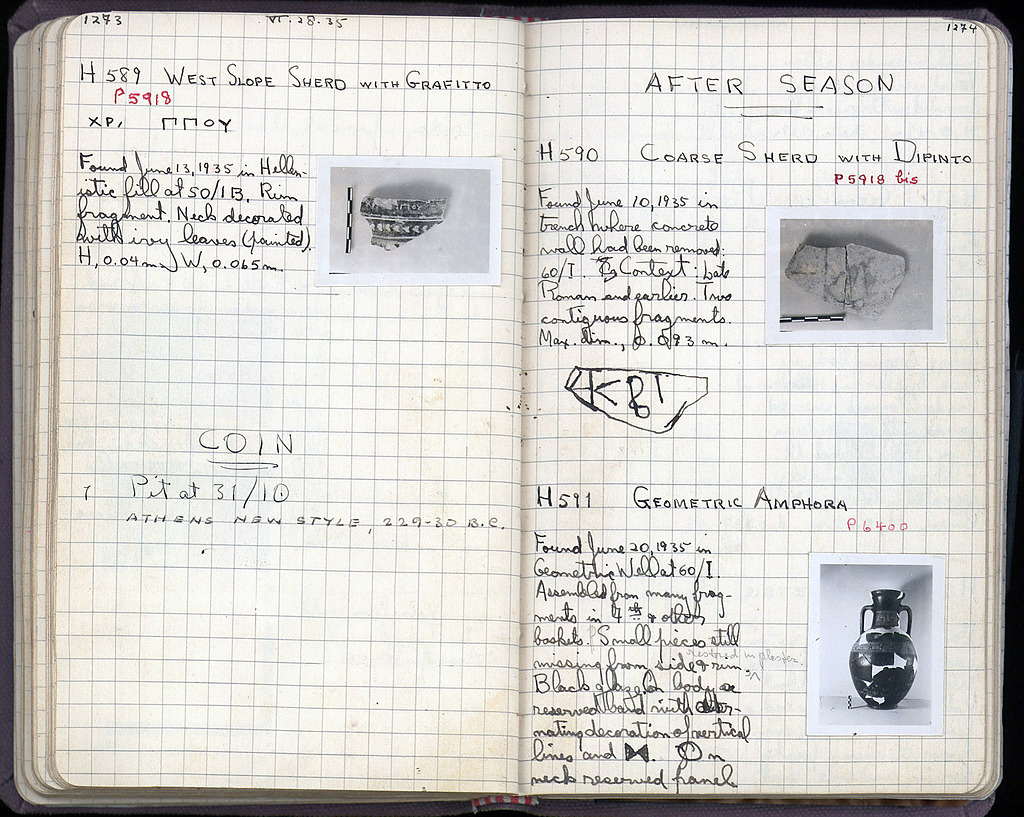 1273
VI.28.35
H 589 WEST SLOPE SHERD WITH GRAFITTO
P 5918
XP, ΠΠΟΥ
Found June 13, 1935 in Hellen-
istic fill at 50/ΙΒ. Rim
fragment. Neck decorated
with ivy leaves (painted).
H, 0.04 m. W, 0.065 m.
COIN
1 Pit at 31/10
ATHENS NEW STYLE, 229-30 B.C.
1274
AFTER SEASON
H 590 COARSE SHERD WITH DIPINTO
P 5918 bis
Found June 10, 1935 in
trench where concrete
wall had been removed.
60/Ι. Context: Late
Roman and earlier. Two
contiguous fragments.
Max. dim., 0.093 m.
H 591 GEOMETRIC AMPHORA
P 6400
Found June 20, 1935 in
Geometric Well at 60/Ι.
Assembled from many frag-
ments in & other
baskets. Small pieces still
restored in plaster.
missing from side & rim.
Black glaze. On body
reserved band with alter-
nating decoration of vertical
lines and ⧓. On
neck reserved panel